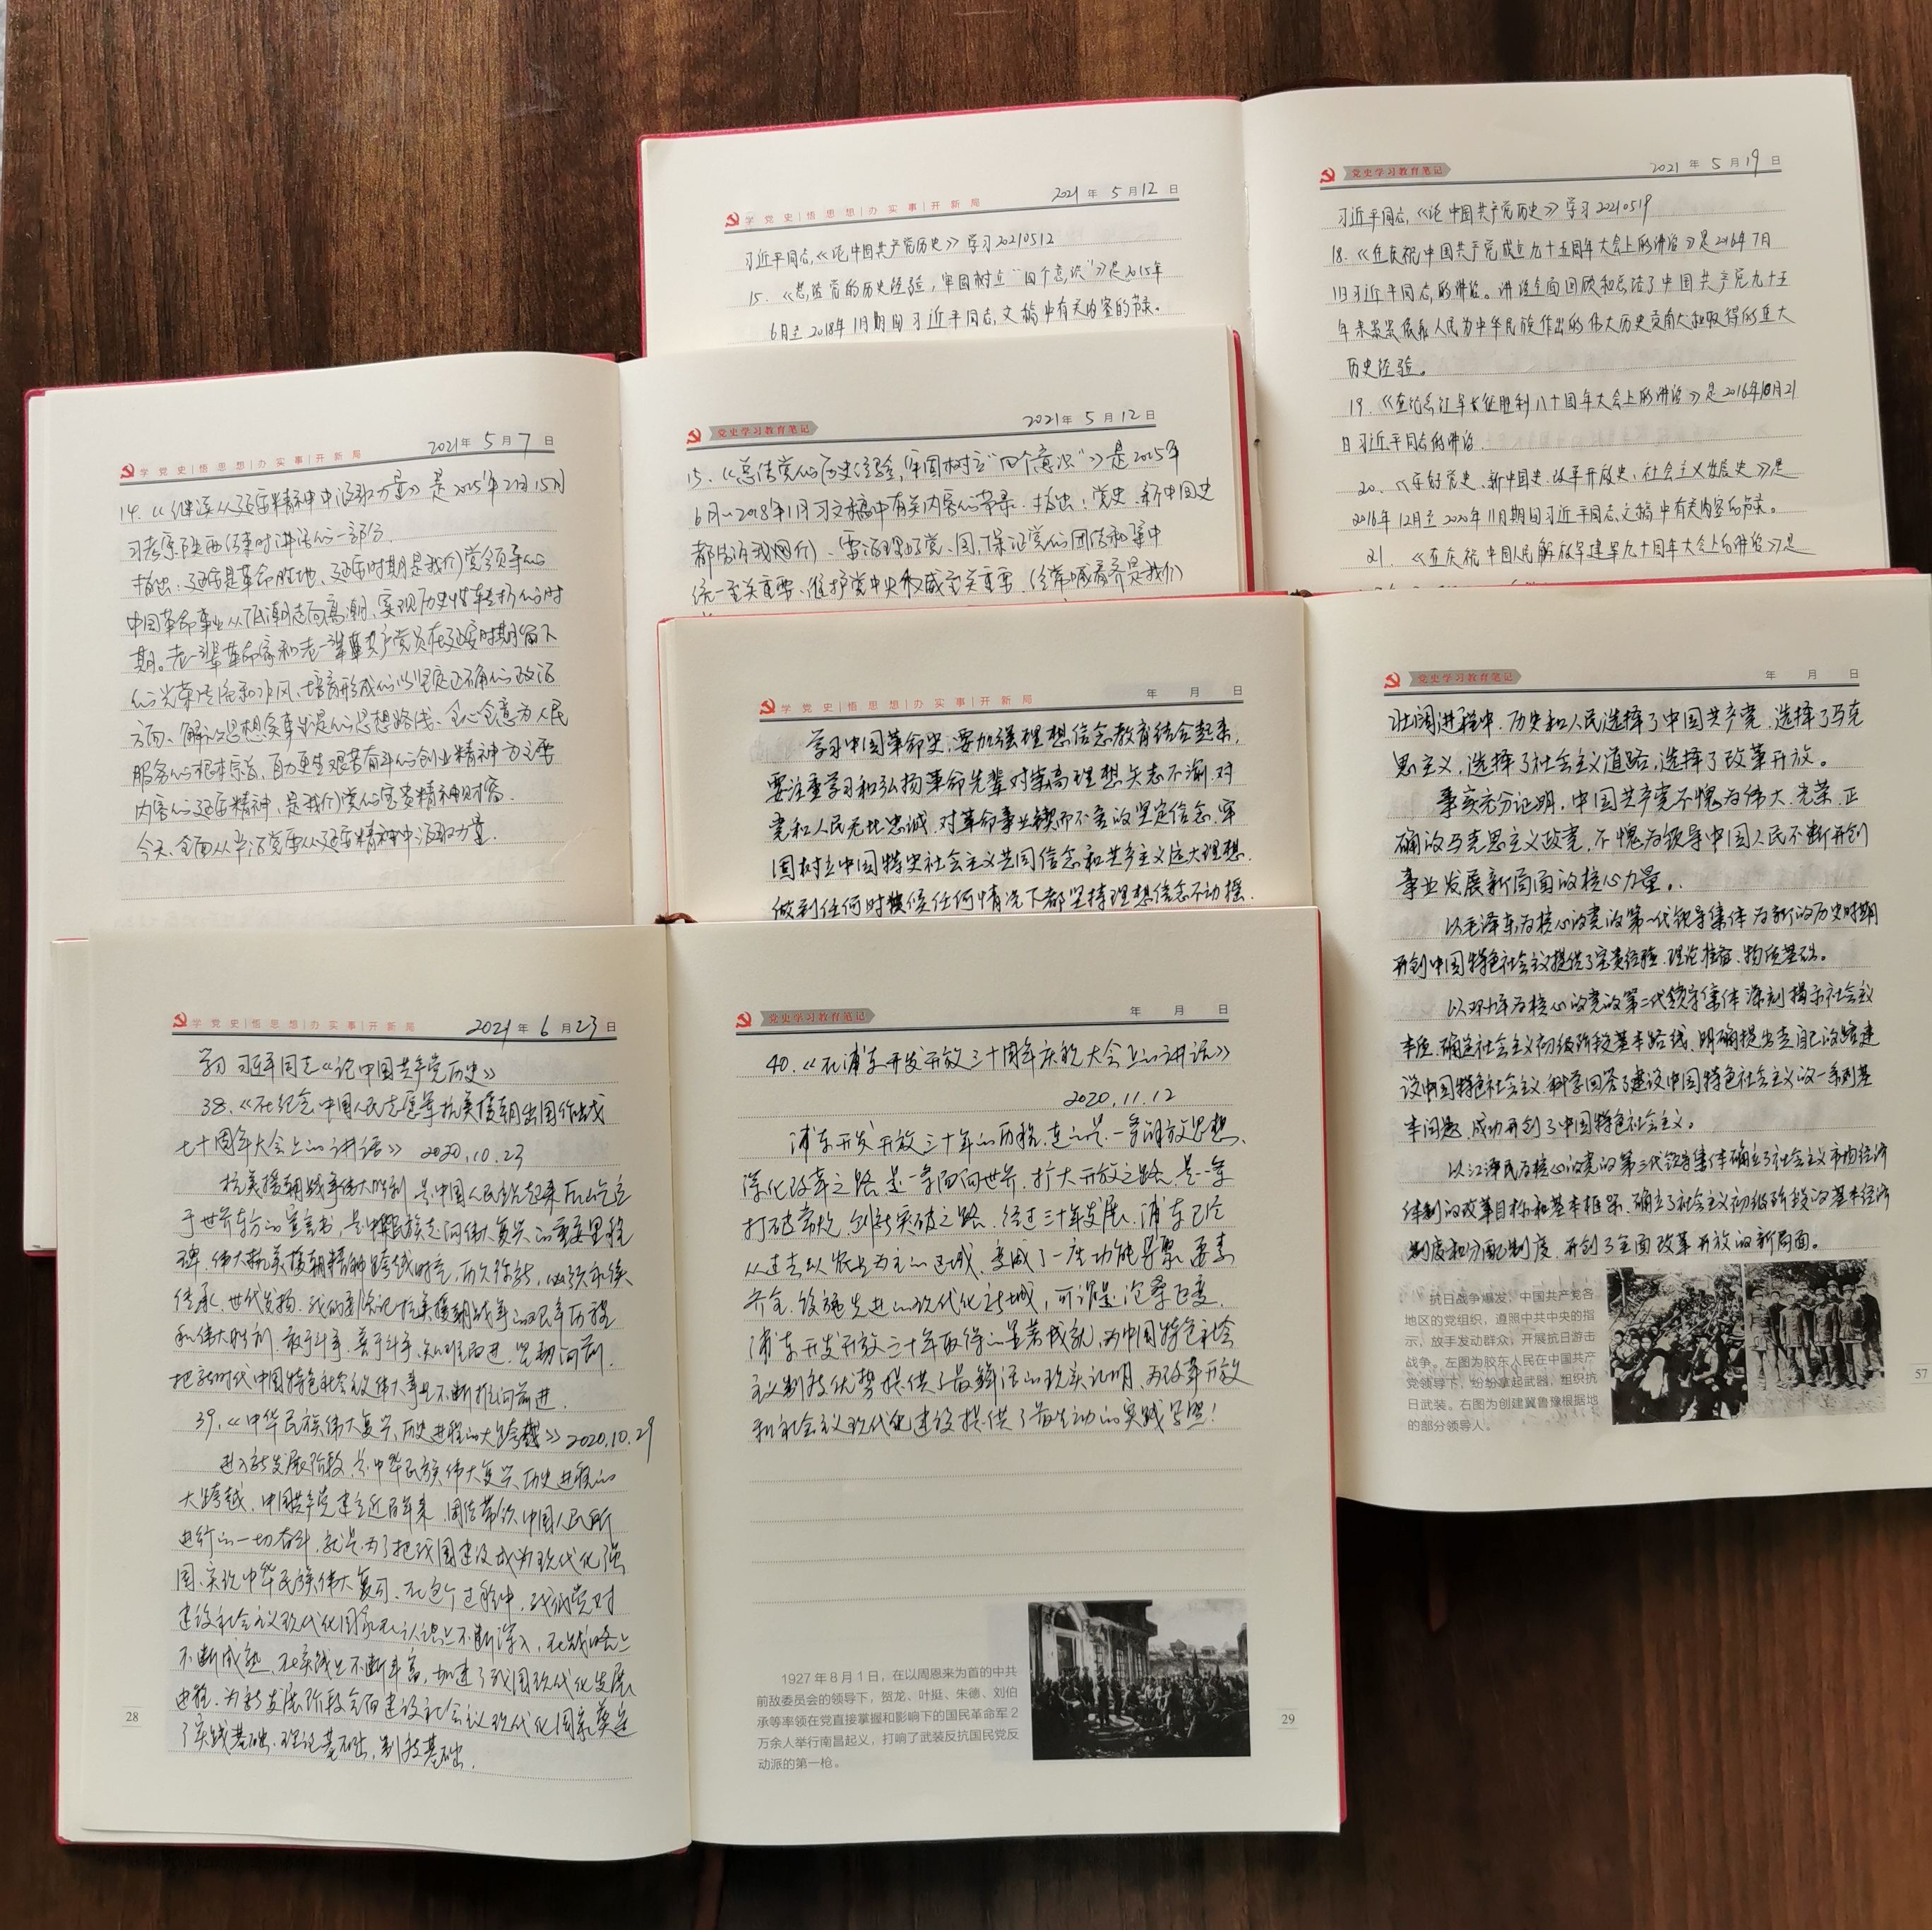 学党史|悟思想|办实事|开新局
2021年5月12日
习近平同志,《论中国共产党历史》学习20210512
15.《总结党的历史经验,牢固树立“四个意识”》是2015年
6月至2018年1月期间习近平同志文稿中有关内容的节录。
党史学习教育笔记
2021年5月19日
习近平同志,《论中国共产党历史》学习20210519
18.《在庆祝中国共产党成立九十五周年大会上的讲话》是2016年7月
1日习近平同志的讲话。讲话全面回顾和总结了中国共产党九十五
年来紧紧依靠人民为中华民族作出的伟大历史贡献和取得的重大
历史经验。
19.《在纪念红军长征胜利八十周年大会上的讲话》是2016年10月21
日习近平同志的讲话.
20.《学好党史、新中国史、改革开放史、社会主义发展史》是
2016年12月至2020年11月期间习近平同志文稿中有关内容的节录。
21.《在庆祝中国人民解放军建军九十周年大会上的讲话》是
学党史|悟思想|办实事|开新局
2021年5月7日
14.《继续从延安精神中汲取力量》是2015年2月15日
习考察陕西结束时讲话的一部分.
指出:延安是革命胜地、延安时期是我们党领导的
中国革命事业从低潮走向高潮、实现历史性转折的时
期。老一辈革命家和老一辈共产党员在延安时期留下
的光荣传统和作风、培育形成的以坚定正确的政治
方向、解放思想实事求是的思想路线、全心全意为人民
服务的根本宗旨、自力更生艰苦奋斗的创业精神为主要
内容的延安精神,是我们党的宝贵精神财富.
今天、全面从严治党要从延安精神中汲取力量.
党史学习教育笔记
2021年5月12日
15.《总结党的历史经验,牢固树立“四个意识”》是2015年
6月~2018年1月习文稿中有关内容的节录.指出:党史、新中国史
都告诉我们、要治理好党、国,保证党的团结和集中
统一至关重要、维护党中央权威至关重要.经常喊看齐是我们
学党史|悟思想|办实事|开新局
年 月 日
学习中国革命史,要加强理想信念教育结合起来,
要注重学习和弘扬革命先辈对崇高理想矢志不渝、对
党和人民无比忠诚、对革命事业锲而不舍的坚定信念,牢
固树立中国特史社会主义共同信念和共产主义远大理想.
做到任何时候任何情况下都坚持理想信念不动摇.
党史学习教育笔记
年 月 日
壮阔进程中,历史和人民选择了中国共产党,选择了马克
思主义,选择了社会主义道路,选择了改革开放。
事实充分证明,中国共产党不愧为伟大、光荣、正
确的马克思主义政党,不愧为领导中国人民不断开创
事业发展新局面的核心力量。
以毛泽东为核心的党的第一代领导集体为新的历史时期
开创中国特色社会主义提供了宝贵经验、理论准备、物质基础。
以邓小平为核心的党的第二代领导集体深刻揭示社会主义
本质,确定社会主义初级阶段基本路线,明确提出走自己的路建
设中国特色社会主义,科学回答了建设中国特色社会主义的一系列基
本问题,成功开创了中国特色社会主义。
以江泽民为核心的党的第三代领导集体确立了社会主义市场经济
体制的改革目标和基本框架,确立了社会主义初级阶段的基本经济
制度和分配制度,开创了全面改革开放的新局面。
抗日战争爆发,中国共产党各
地区的党组织,遵照中共中央的指
示,放手发动群众,开展抗日游击
战争。左图为胶东人民在中国共产
党领导下,纷纷拿起武器,组织抗
日武装。右图为创建冀鲁豫根据地
的部分领导人。
57
学党史|悟思想|办实事|开新局
2021年6月23日
学习 习近平同志《论中国共产党历史》
38.《在纪念中国人民志愿军抗美援朝出国作战
七十周年大会上的讲话》 2020.10.23
抗美援朝战争伟大胜利,是中国人民站起来后屹立
于世界东方的宣言书,是中华民族走向伟大复兴的重要里程
碑.伟大抗美援朝精神跨越时空,历久弥新,必须永续
传承、世代发扬.我们要铭记抗美援朝战争的艰辛历程
和伟大胜利.敢于斗争、善于斗争,知难而进、坚韧向前,
把新时代中国特色社会主义伟大事业不断推向前进.
39.《中华民族伟大复兴历史进程的大跨越》2020.10.29
进入新发展阶段,是中华民族伟大复兴历史进程的
大跨越.中国共产党建立近百年来,团结带领中国人民所
进行的一切奋斗,就是为了把我国建设成为现代化强
国,实现中华民族伟大复兴.在这个过程中,我们党对
建设社会主义现代化国家在认识上不断深入,在战略上
不断成熟,在实践上不断丰富,加速了我国现代化发展
进程,为新发展阶段全面建设社会主义现代化国家奠定
了实践基础、理论基础,制度基础.
28
党史学习教育笔记
年 月 日
40.《在浦东开发开放三十周年庆祝大会上的讲话》
2020.11.12
浦东开发开放三十年的历程,走的是一条解放思想、
深化改革之路,是一条面向世界、扩大开放之路,是一条
打破常规、创新突破之路.经过三十年发展,浦东已经
从过去以农业为主的区域,变成了一座功能集聚、要素
齐全、设施先进的现代化新城,可谓是沧桑巨变.
浦东开发开放三十年取得的显著成就,为中国特色社会
主义制度优势提供了最鲜活的现实证明,为改革开放
和社会主义现代化建设提供了最生动的实践写照!
1927年8月1日,在以周恩来为首的中共
前敌委员会的领导下,贺龙、叶挺、朱德、刘伯
承等率领在党直接掌握和影响下的国民革命军2
万余人举行南昌起义,打响了武装反抗国民党反
动派的第一枪。
29